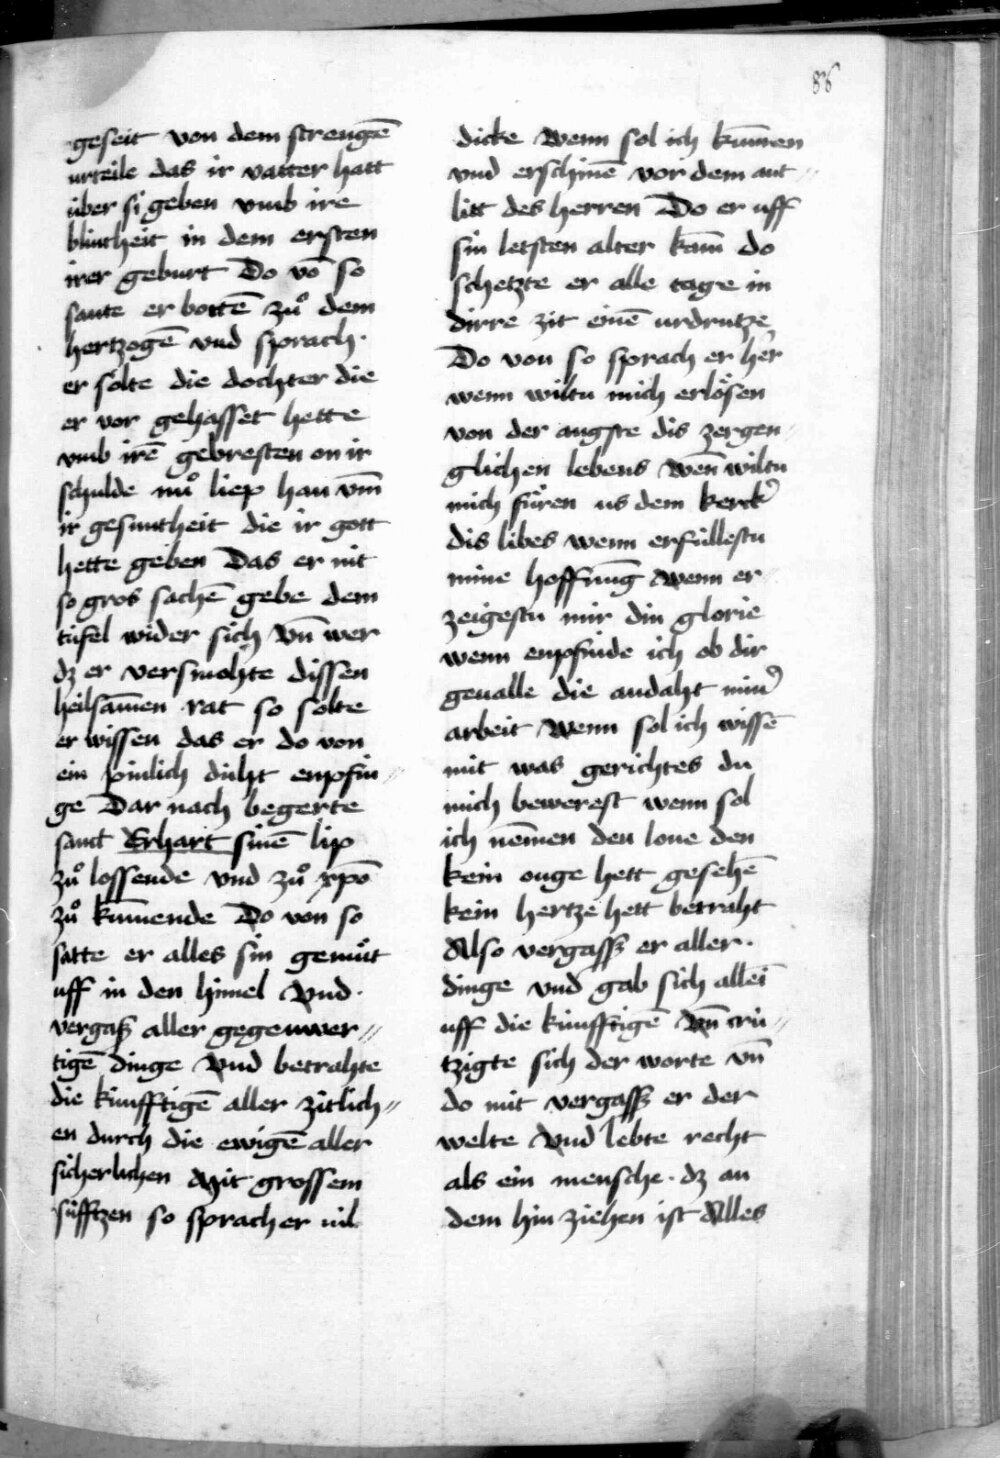 86
geseit von dem strengē
urteile das ir vatter hatt
über si geben vmb ire
blintheit in dem ersten
irer geburt Do vō so
sante er bottē zů dem
hertzogē vnd sprach·
er sölte die dochter die
er vor gehasset hette
vmb irē gebresten on ir
schulde nů liep han vm̄
ir gesuntheit die ir gott
hette geben Das er nit
so gros sachē gebe dem
tüfel wider sich vn̄ wer
dz er versmohte dissen
heilsām̄en rat so sölte
er wissen das er do von
ein pinlich düht enpfin⸗
ge Dar nach begerte
sanct Erhart sinē lip
zů lossende vnd zů xp̄o
zů kum̄ende Do von so
satte er alles sin gemüt
uff in den himel Vnd·
vergasz aller gegenwer⸗
tigē dinge Vnd betrahte
die künfftigē aller zitlich⸗
en durch die ewigē aller
sicherlichen Mit grossem
süfftzen so sprach er vil
dicke Wenn sol ich kum̄en
vnd erschinē vor dem ant⸗
litt des herren Do er uff
sin letsten alter kam̄ do
schetzte er alle tage in
dirre zit einē urdrutze
Do von so sprach er her
wenn wiltu mich erlösen
von der angste dis zergen⸗
glichen lebens Wen̄ wiltu
mich füren us dem kerck̾
dis libes wenn erfüllestu
mine hoffnūg Wenn er⸗
zeigestu mir din glorie
wenn enpfinde ich ob dir
geualle die andaht min̾
arbeit Wenn sol ich wissē
mit was gerichtes du
mich bewerest wenn sol
ich nem̄en den lone den
kein ouge hett gesehē
kein hertze hett betraht
Also vergassz er aller·
dinge vnd gab sich alleī
uff die künfftigē Vn̄ crü⸗
tzigte sich der worte vn̄
do mit vergassz er der
welte Vnd lebte recht
als ein mensche· dz an
dem hin ziehen ist Alles